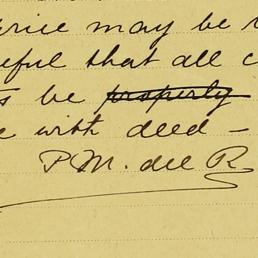 price may be
eful that all c
s be properly
e with deed -
P. M. del R